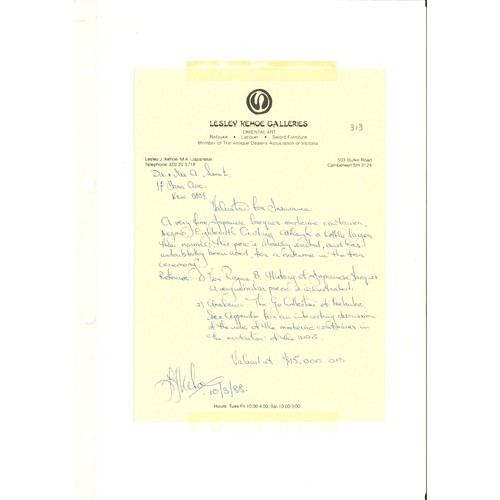 LESLEY KEHOE GALLERIES
ORIENTAL ART
Netsuke • Lacquer • Sword Furniture
Member of The Antique Dealers Association of Victoria
313
Lesley J. Kehoe, M.A. (Japanese)
Telephone: (03) 20 5718
503 Burke Road
Camberwell Sth 3124
Dr. & Mrs A.
17 Ave.
Kew 3101.
Valuation for Insurance
A very fine Japanese lacquer medicine container,
Eighteenth Century. Although a little larger
than normal, this piece is ideally suited, and has
undoubtedly been used, for a in the tea
ceremony.
References 1) Von Ragué B. History of Japanese Lacquer
A very similar piece is illustrated.
2) The Go Collection of Netsuke
See Appendix for an interesting discussion
of the use of the medicine containers in
the of the
Valued at $15,000.00
10/3/88.
Hours: Tues-Fri 10:00-4:00, Sat 10:00-3:00